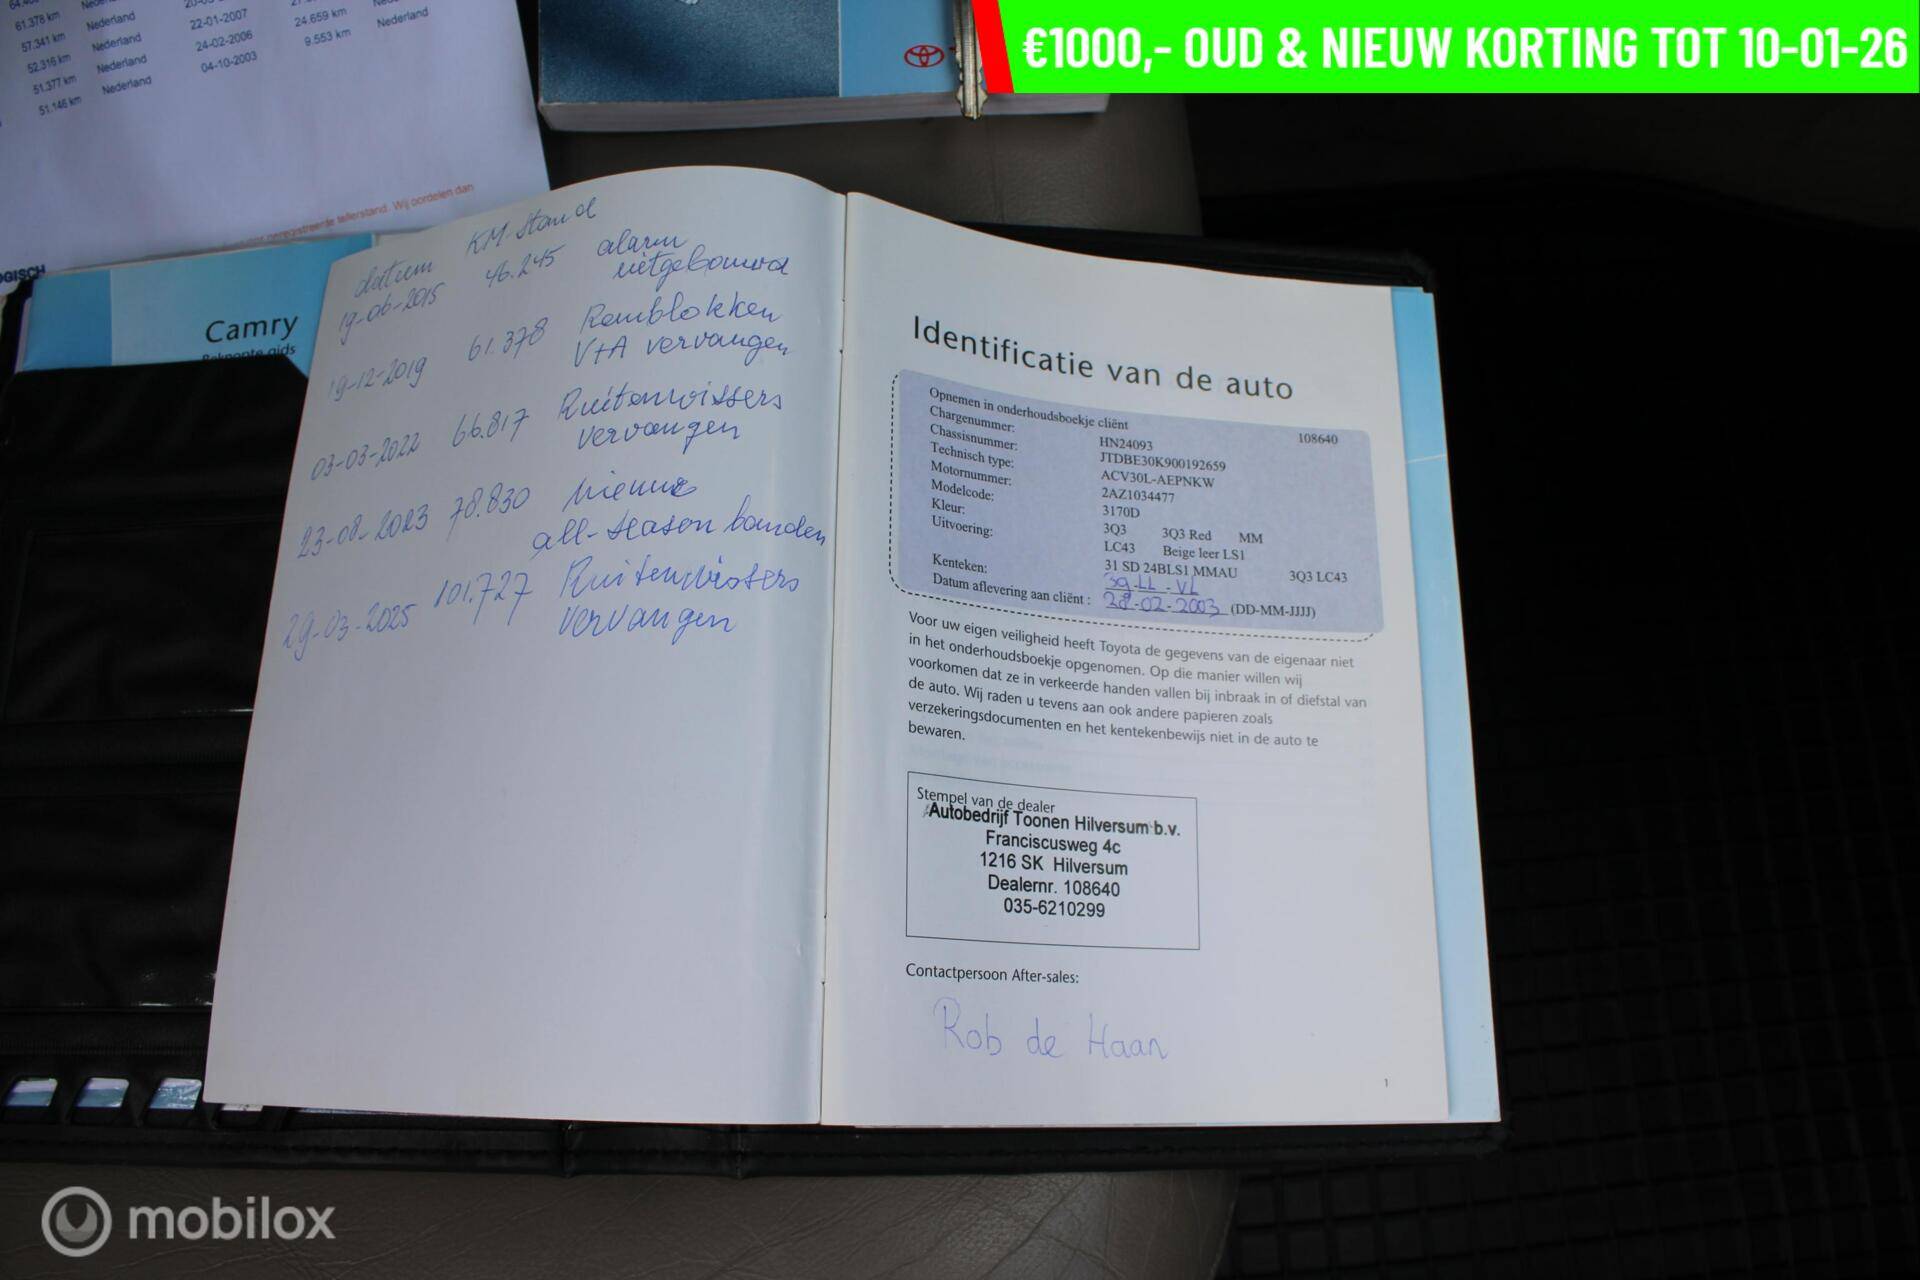 €1000,- OUD & NIEUW KORTING TOT 10-01-26
61.378 km Nederland
57.341 km Nederland 22-01-2007 24.659 km Nederland
52.316 km Nederland 24-02-2006 9.553 km
51.377 km Nederland 04-10-2003
51.146 km Nederland
geregistreerde tellerstand. Wij oordelen dan
OGISCH
Camry
Beknopte gids
datum KM-Stand
19-06-2015 46.245 alarm
uitgebouwd
19-12-2019 61.378 Remblokken
V+A vervangen
03-03-2022 66.817 Ruitenwissers
vervangen
23-08-2023 78.830 nieuwe
all-season banden
29-03-2025 101.727 Ruitenwissers
vervangen
Identificatie van de auto
Opnemen in onderhoudsboekje cliënt 108640
Chargenummer: HN24093
Chassisnummer: JTDBE30K900192659
Technisch type: ACV30L-AEPNKW
Motornummer: 2AZ1034477
Modelcode: 3170D
Kleur: 3Q3 3Q3 Red MM
Uitvoering: LC43 Beige leer LS1
31 SD 24BLS1 MMAU 3Q3 LC43
Kenteken: 39-LL-VL
Datum aflevering aan cliënt : 28-02-2003 (DD-MM-JJJJ)
Voor uw eigen veiligheid heeft Toyota de gegevens van de eigenaar niet
in het onderhoudsboekje opgenomen. Op die manier willen wij
voorkomen dat ze in verkeerde handen vallen bij inbraak in of diefstal van
de auto. Wij raden u tevens aan ook andere papieren zoals
verzekeringsdocumenten en het kentekenbewijs niet in de auto te
bewaren.
Stempel van de dealer
Autobedrijf Toonen Hilversum b.v.
Franciscusweg 4c
1216 SK Hilversum
Dealernr. 108640
035-6210299
Contactpersoon After-sales:
Rob de Haan
1
mobilox